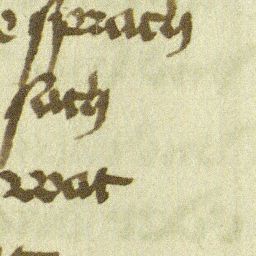 sprach
sach
wat